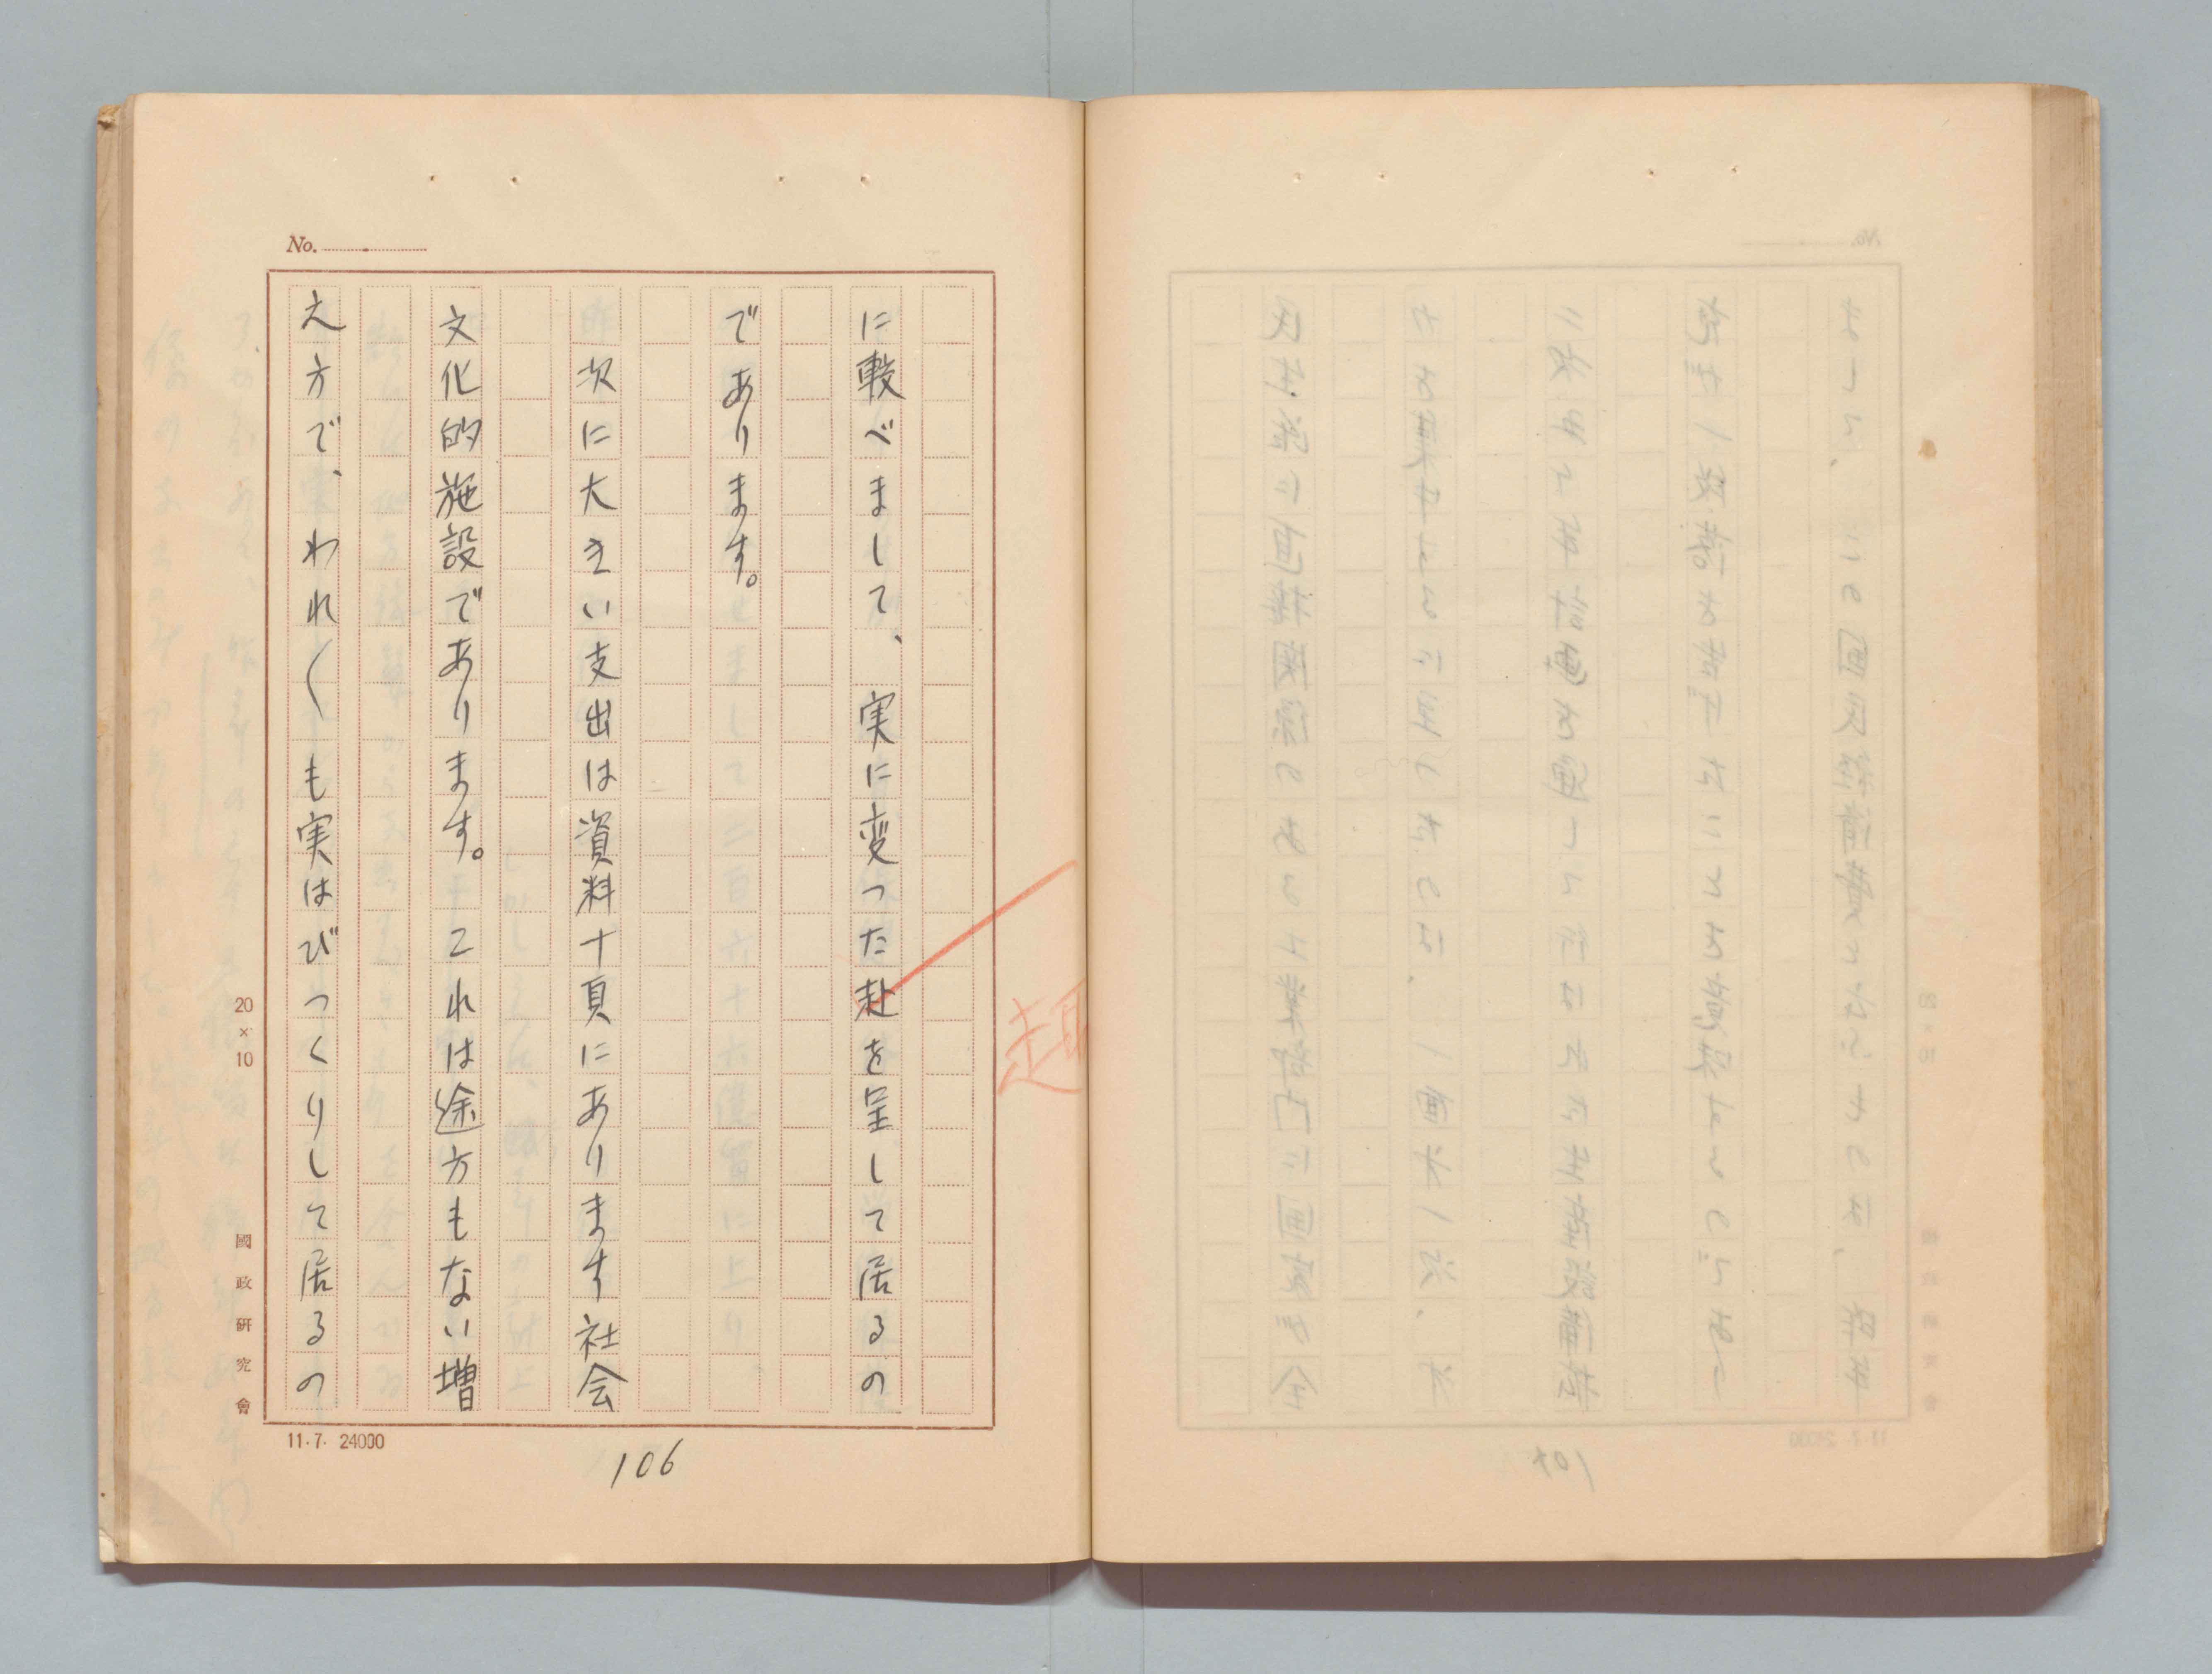 No.
に較べまして、実に変った赴を呈して居るの
趣
であります。
次に大きい支出は資料十頁にあります社会
文化的施設であります。これは途方もない増
え方で、われ〱も実はびつくりして居るの
20×10
國政研究會
11.7. 24000
106